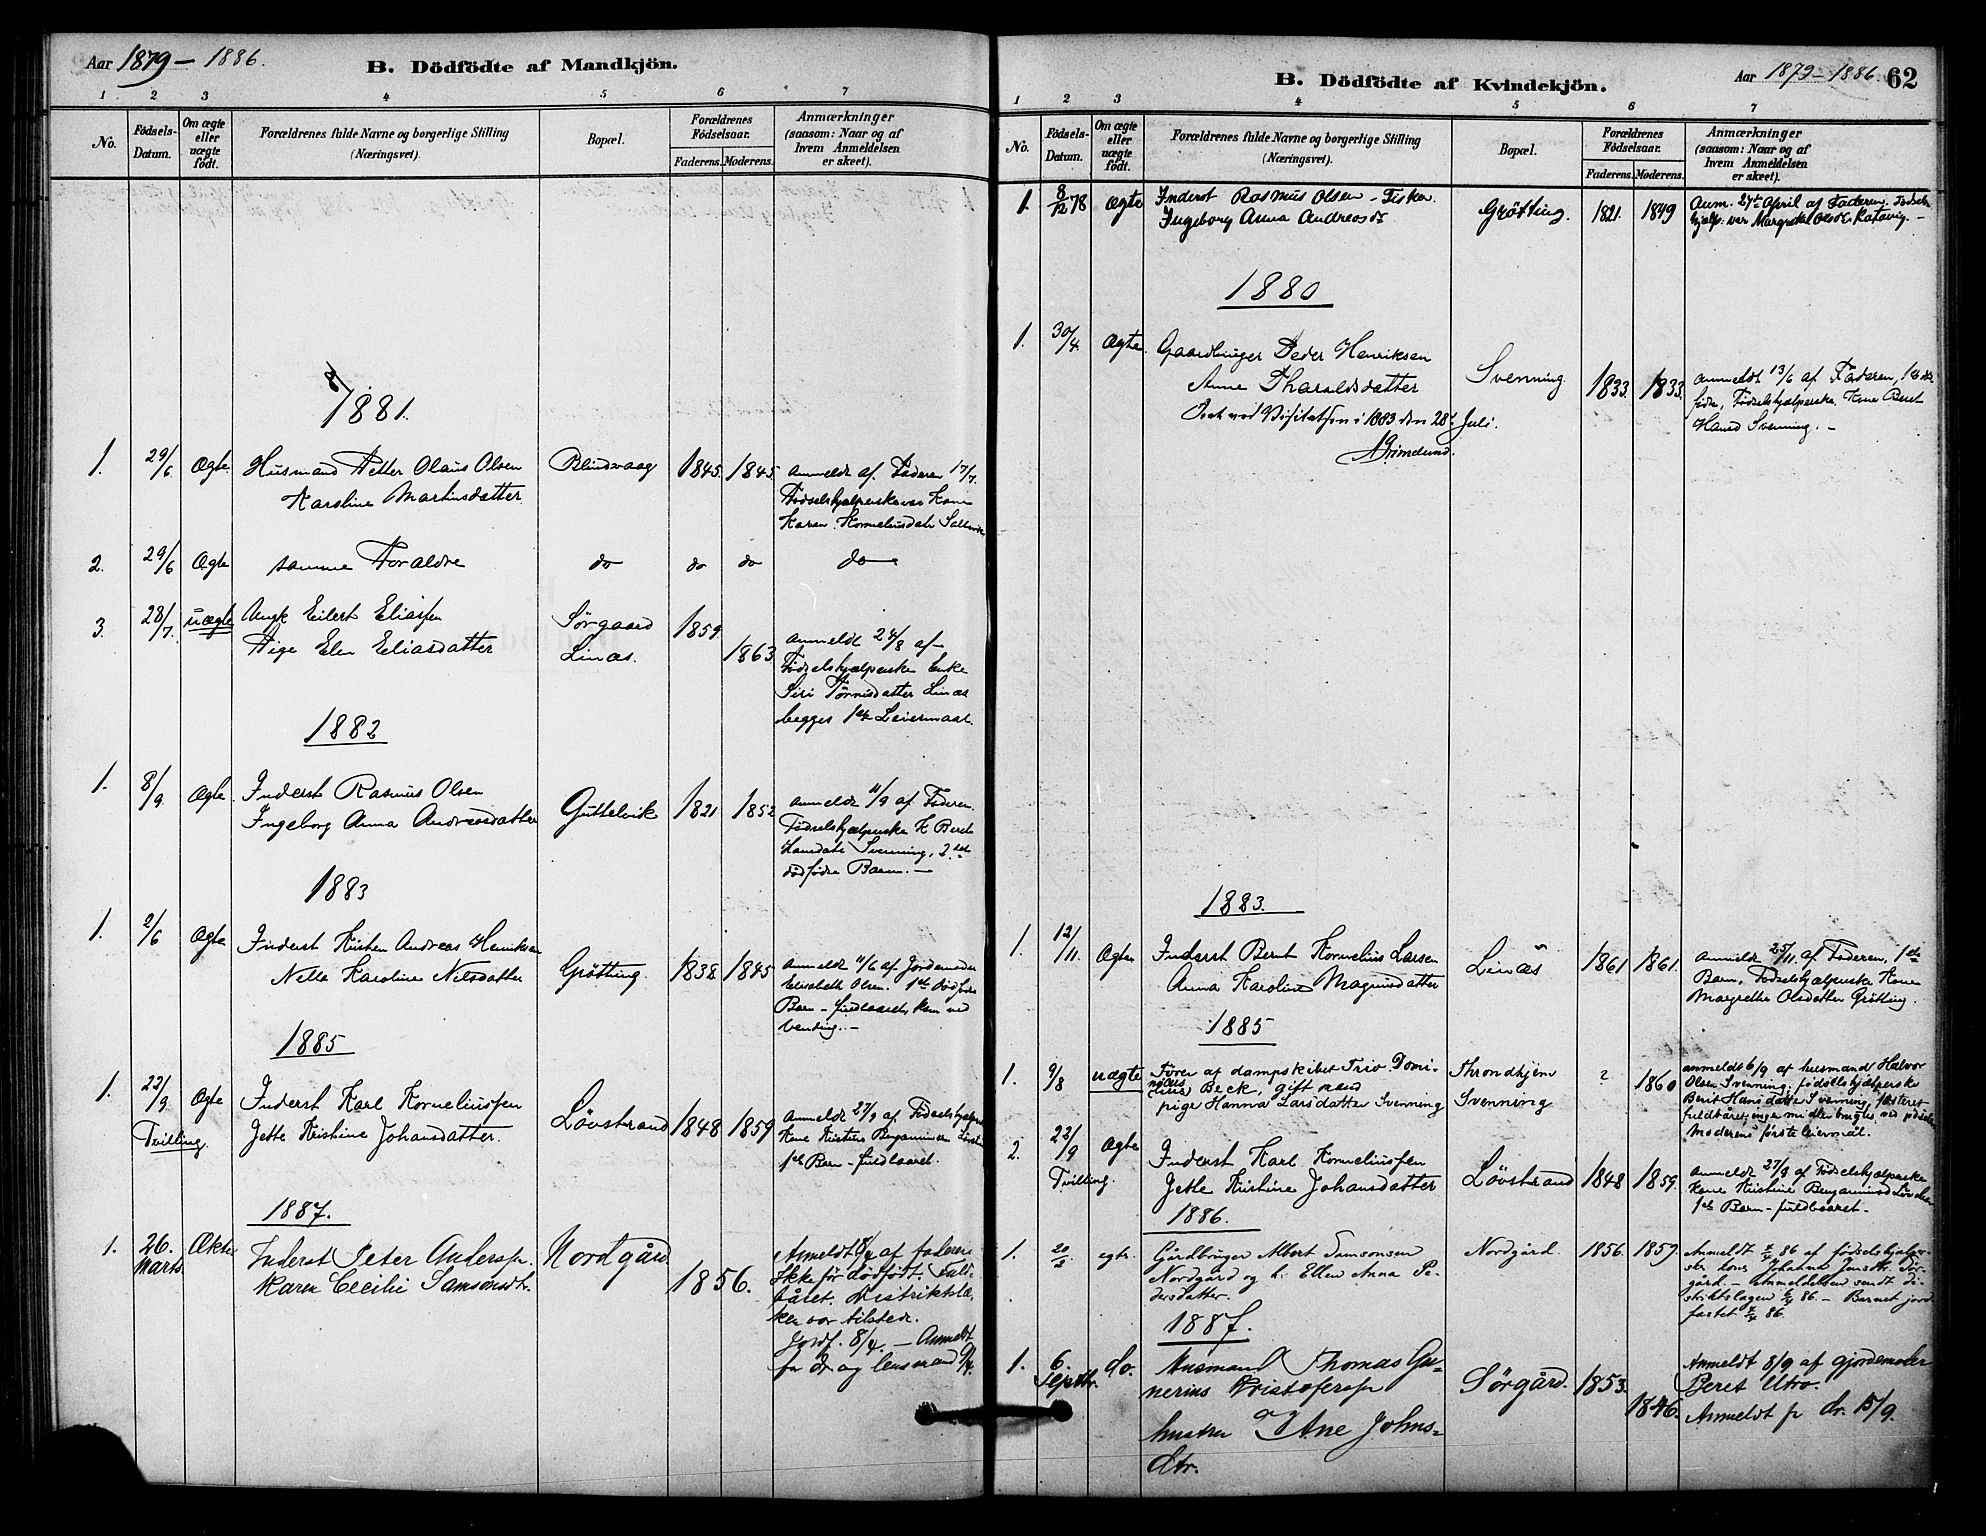 Aar 1879 – 1886.
B. Dödfödte af Mandkjön.
1 2 3 4 5 6 7
No.
Födsels-
Datum.
Om ægte
eller
uægte
födt.
Forældrenes fulde Navne og borgerlige Stilling
(Næringsvei).
Bopæl.
Forældrenes
Födselsaar.
Faderens. Moderens.
Anmærkninger
(saasom: Naar og af
hvem Anmeldelsen
er skeet).
1881.
1. 29/6 Ægte Husmand Petter Olaus Olsen Blindvaag 1845. 1845.
Karoline Martinsdatter
Anmeldt af Faderen 17/7.
Fødselshjælperske var Kone
Karen Korneliusdatr
2. 29/6 Ægte samme Forældre do do do do
3. 28/7. uægte Ungk Eilert Eliassen Sørgaard 1859.
Pige Elen Eliasdatter Linæs. 1863
Anmeldt 24/8 af
Fødselshjælperske Enke
Siri Tønnisdatter Linæs
begges 1ste Leiermaal.
1882
1. 8/9. Ægte Inderst Rasmus Olsen
Ingeborg Anna Andreasdatter Guttelvik 1821 1852
Anmeldt 11/9 af Faderen.
Fødselshjælperske K Beret
Hansdatr Svenning, 2det
dødfødte Barn. –
1883
1. 2/6 Ægte Inderst Kristen Andreas Henriksen
Nella Karoline Nilsdatter Grøtting. 1838 1845
Anmeldt 11/6 af Jordemoder
Elisabeth Olsen. 1ste Dødfødte
Barn – fuldbaaret, kom ved
Vending. –
1885
1. 22/9 Ægte Inderst Karl Korneliussen
Tvilling. Jette Kristine Johansdatter. Løvstrand 1848 1859
Anmeldt 27/9 af Fødselshjælperske
Kone Kristine Benjaminsd
1ste Barn – fuldbaaret.
1887.
1. 26. Marts Ækte Inderst Peter Anderss. Nordgård
Karen Cecilie Samsonsdt. 1856.
Anmeldt 8/4 af faderen
Ikke før dødfødt. Fuld-
båret. Distriktslæ-
ken var tilstede.
Jordf. 8/4. – Anmeldt
for dr og lensmand 9/4.
B. Dödfödte af Kvindekjön.
Aar 1879 – 1886. 62
1 2 3 4 5 6 7
No.
Födsels-
Datum.
Om ægte
eller
uægte
födt.
Forældrenes fulde Navne og borgerlige Stilling
(Næringsvei).
Bopæl.
Forældrenes
Födselsaar.
Faderens. Moderens.
Anmærkninger
(saasom: Naar og af
hvem Anmeldelsen
er skeet).
1. 8/12 78 Ægte Inderst Rasmus Olsen – Fisker
Ingeborg Anna Andreasdr Grøtting. 1821. 1849
Anm. 27de April af Faderen. Fødsels-
hjælp: var Margrethe Olsdr
1880
1. 30/4. Ægte. Gaardbruger Peder Henriksen
Anne Tharaldsdatter Svenning. 1833. 1833.
Anmeldt 13/6 af Faderen, 1ste død-
fødte, Fødselshjælperske Kone Beret
Hansd Svenning. –
Seet ved Visitatsen i 1883 den 28de Juli.
Grimelund.
1883.
1. 12/11. Ægte Inderst Bernt Kornelius Larsen
Anna Karoline Magnusdatter Linæs 1861 1861.
Anmeldt 25/11. af Faderen, 1ste
Barn, Fødselshjælperske Kone
Margrethe Olsdatter Grøtting.
1885
1. 9/8 uægte Fører af dampskibet Trio Domi-
nicus Beck, gift mand Throndhjem ?
pige Hanna Larsdatter Svenning Svenning 1860
anmeldt 6/9 af husmand Halvor
Olsen Svenning; fødselshjælperske
Berit Hansdatter Svenning, fosteret
fuldbåret, ingen midler brugtes ved
Moderens første leiermål.
2. 22/9 Ægte Inderst Karl Korneliussen
Tvilling. Jette Kristine Johansdatter Løvstrand 1848 1859.
Anmeldt 27/9 af Fødselshjælperske
Kone Kristine Benjaminsd
1ste Barn – fuldbaaret –
1886.
1. 20/3 egte. Gårdbruger Albert Samsonsen Nordgård. 1856. 1859.
Nordgård og h. Ellen Anna Pe-
dersdatter.
Anmeldt 4/4 86 af fødselshjælper-
ske kone Johanna Jensdtr. Sør-
gård. – Anmeldelsen sendt di-
striktslægen 6/4 86. – Barnet jord-
fæstet 4/4 86.
1887.
1. 6. Septbr. do. Husmand Thomas Gu-
nerius Kristoferss. Sørgård. 1853.
hustru Ane Johns-
dtr. 1846.
Anmeldt 8/9 af gjordemoder
Beret Utvo.
Anmeldt for dr. 15/9.